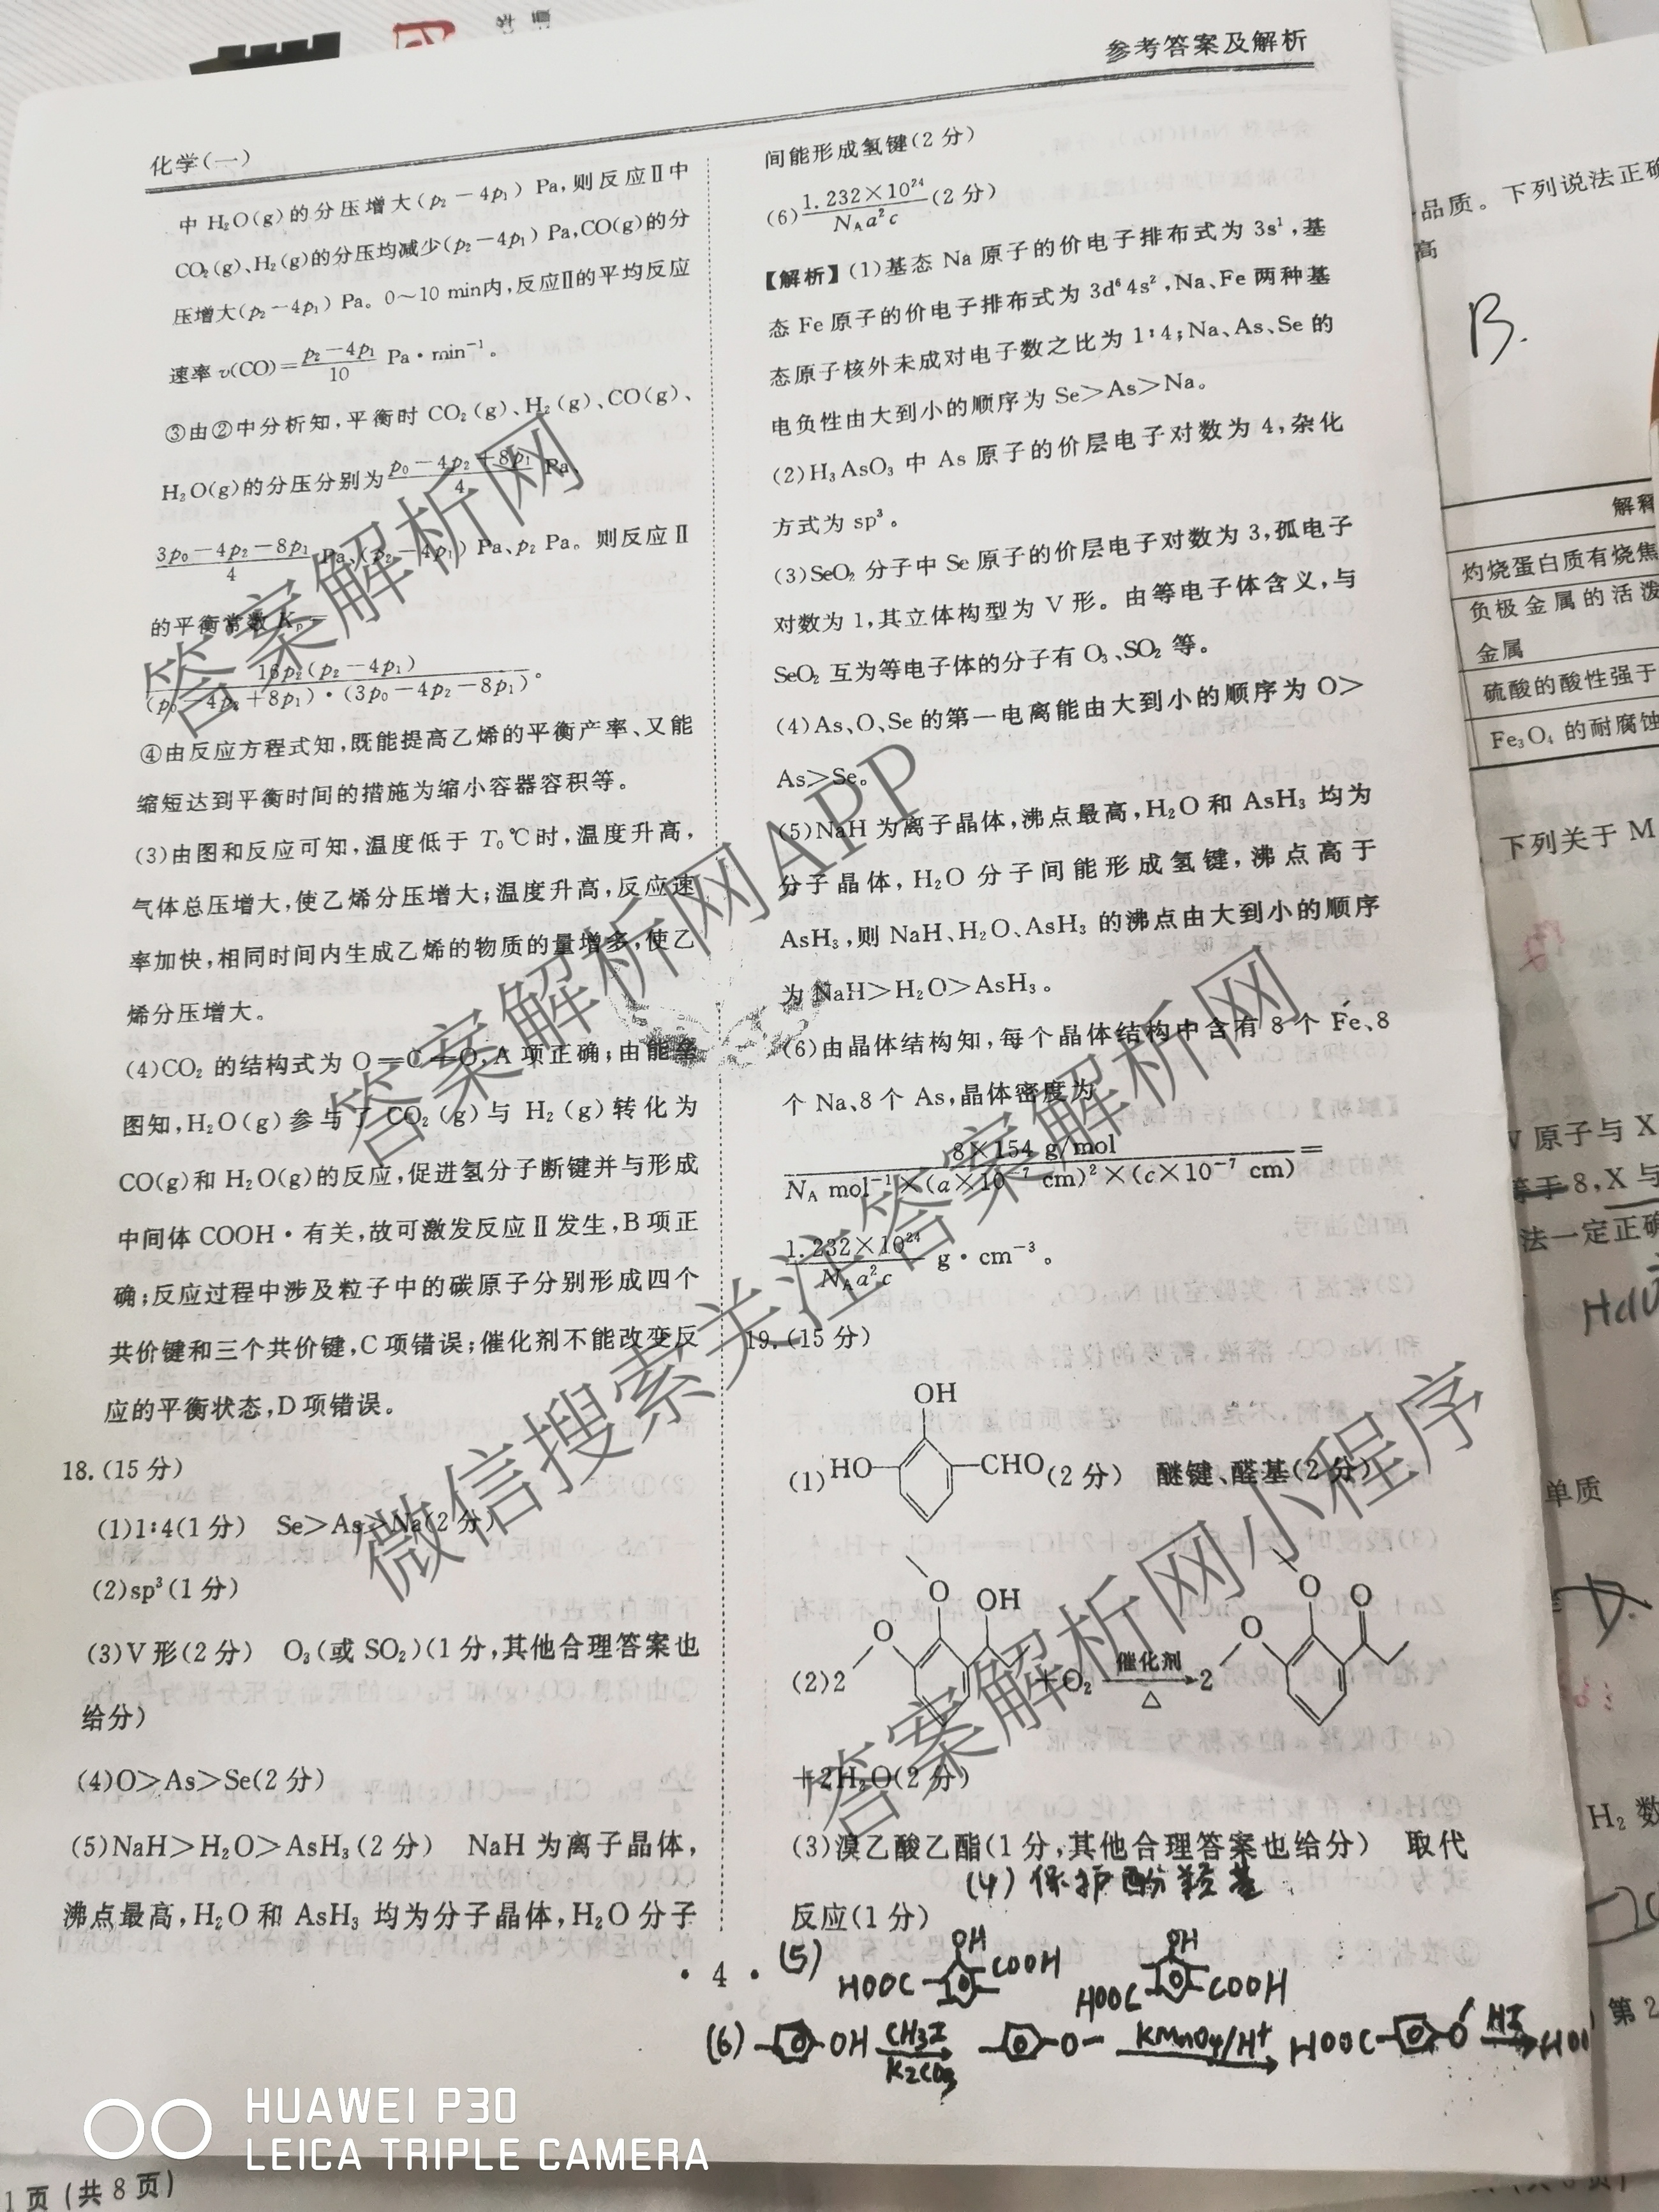 参考答案及解析
化学(一)
中 H₂O(g)的分压增大(p₂-4p₁) Pa,则反应Ⅱ中
CO₂(g)、H₂(g)的分压均减少(p₂-4p₁) Pa,CO(g)的分
压增大(p₂-4p₁) Pa。0~10 min内,反应Ⅱ的平均反应
速率 v(CO)=(p₂-4p₁)/10 Pa·min⁻¹。
③由②中分析知,平衡时 CO₂(g)、H₂(g)、CO(g)、
H₂O(g)的分压分别为(p₀-4p₂+8p₁)/4 Pa、
(3p₀-4p₂-8p₁)/4 Pa、(p₂-4p₁) Pa、p₂ Pa。则反应Ⅱ
的平衡常数 Kₚ=
16p₂(p₂-4p₁)
(p₀-4p₂+8p₁)·(3p₀-4p₂-8p₁)。
④由反应方程式知,既能提高乙烯的平衡产率、又能
缩短达到平衡时间的措施为缩小容器容积等。
(3)由图和反应可知,温度低于 T₀℃时,温度升高,
气体总压增大,使乙烯分压增大;温度升高,反应速
率加快,相同时间内生成乙烯的物质的量增多,使乙
烯分压增大。
(4)CO₂ 的结构式为 O=C=O,A 项正确;由能垒
图知,H₂O(g)参与了 CO₂(g)与 H₂(g)转化为
CO(g)和 H₂O(g)的反应,促进氢分子断键并与形成
中间体 COOH·有关,故可激发反应Ⅱ发生,B 项正
确;反应过程中涉及粒子中的碳原子分别形成四个
共价键和三个共价键,C 项错误;催化剂不能改变反
应的平衡状态,D 项错误。
18.(15 分)
(1)1∶4(1 分) Se>As>Na(2 分)
(2)sp³(1 分)
(3)V 形(2 分) O₃(或 SO₂)(1 分,其他合理答案也
给分)
(4)O>As>Se(2 分)
(5)NaH>H₂O>AsH₃(2 分) NaH 为离子晶体,
沸点最高,H₂O 和 AsH₃ 均为分子晶体,H₂O 分子
间能形成氢键(2 分)
(6)1.232×10²⁴/(N_A a²c)(2 分)
【解析】(1)基态 Na 原子的价电子排布式为 3s¹,基
态 Fe 原子的价电子排布式为 3d⁶4s²,Na、Fe 两种基
态原子核外未成对电子数之比为 1∶4;Na、As、Se 的
电负性由大到小的顺序为 Se>As>Na。
(2)H₃AsO₃ 中 As 原子的价层电子对数为 4,杂化
方式为 sp³。
(3)SeO₂ 分子中 Se 原子的价层电子对数为 3,孤电子
对数为 1,其立体构型为 V 形。由等电子体含义,与
SeO₂ 互为等电子体的分子有 O₃、SO₂ 等。
(4)As、O、Se 的第一电离能由大到小的顺序为 O>
As>Se。
(5)NaH 为离子晶体,沸点最高,H₂O 和 AsH₃ 均为
分子晶体,H₂O 分子间能形成氢键,沸点高于
AsH₃,则 NaH、H₂O、AsH₃ 的沸点由大到小的顺序
为 NaH>H₂O>AsH₃。
(6)由晶体结构知,每个晶体结构中含有 8 个 Fe、8
个 Na、8 个 As,晶体密度为
8×154 g/mol
N_A mol⁻¹×(a×10⁻⁷ cm)²×(c×10⁻⁷ cm)=
1.232×10²⁴/(N_A a²c) g·cm⁻³。
19.(15 分)
OH
(1)HO CHO(2 分) 醚键、醛基(2 分)
O OH O O
(2)2 O +O₂ 催化剂 △ →2 O
+2H₂O(2 分)
(3)溴乙酸乙酯(1 分,其他合理答案也给分) 取代
反应(1 分)
(4)保护酚羟基
(5) HOOC OH COOH HOOC OH COOH
(6) OH CH₃I K₂CO₃ O KMnO₄/H⁺ HOOC O HI HO
· 4 ·
答案解析网
答案解析网APP
微信搜索关注答案解析网
答案解析网小程序
HUAWEI P30
LEICA TRIPLE CAMERA
1 页(共 8 页)
品质。下列说法正确
高
B.
解释
灼烧蛋白质有烧焦
负极金属的活泼
金属
硫酸的酸性强于
Fe₃O₄ 的耐腐蚀
下列关于 M
原子与 X
等于 8,X 与
法一定正确
单质
D.
H₂ 数
第 2